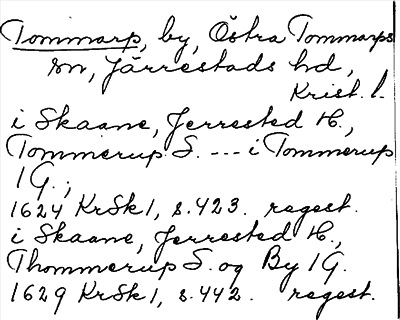 Tommarp, by, Östra Tommarps
sn, Järrestads hd,
Krist. l.
i Skaane, Jerrested H.,
Tommerup S. --- i Tommerup
1 G.,
1624 KrSk 1, s. 423. regest.
i Skaane, Jerrested H.,
Thommerup S. og By 1 G.
1629 KrSk 1, s. 442. regest.